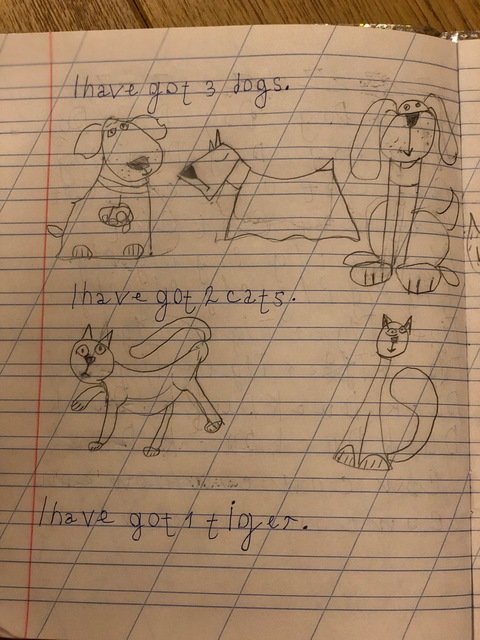 I have got 3 dogs.
I have got 2 cats.
I have got 1 tiger.